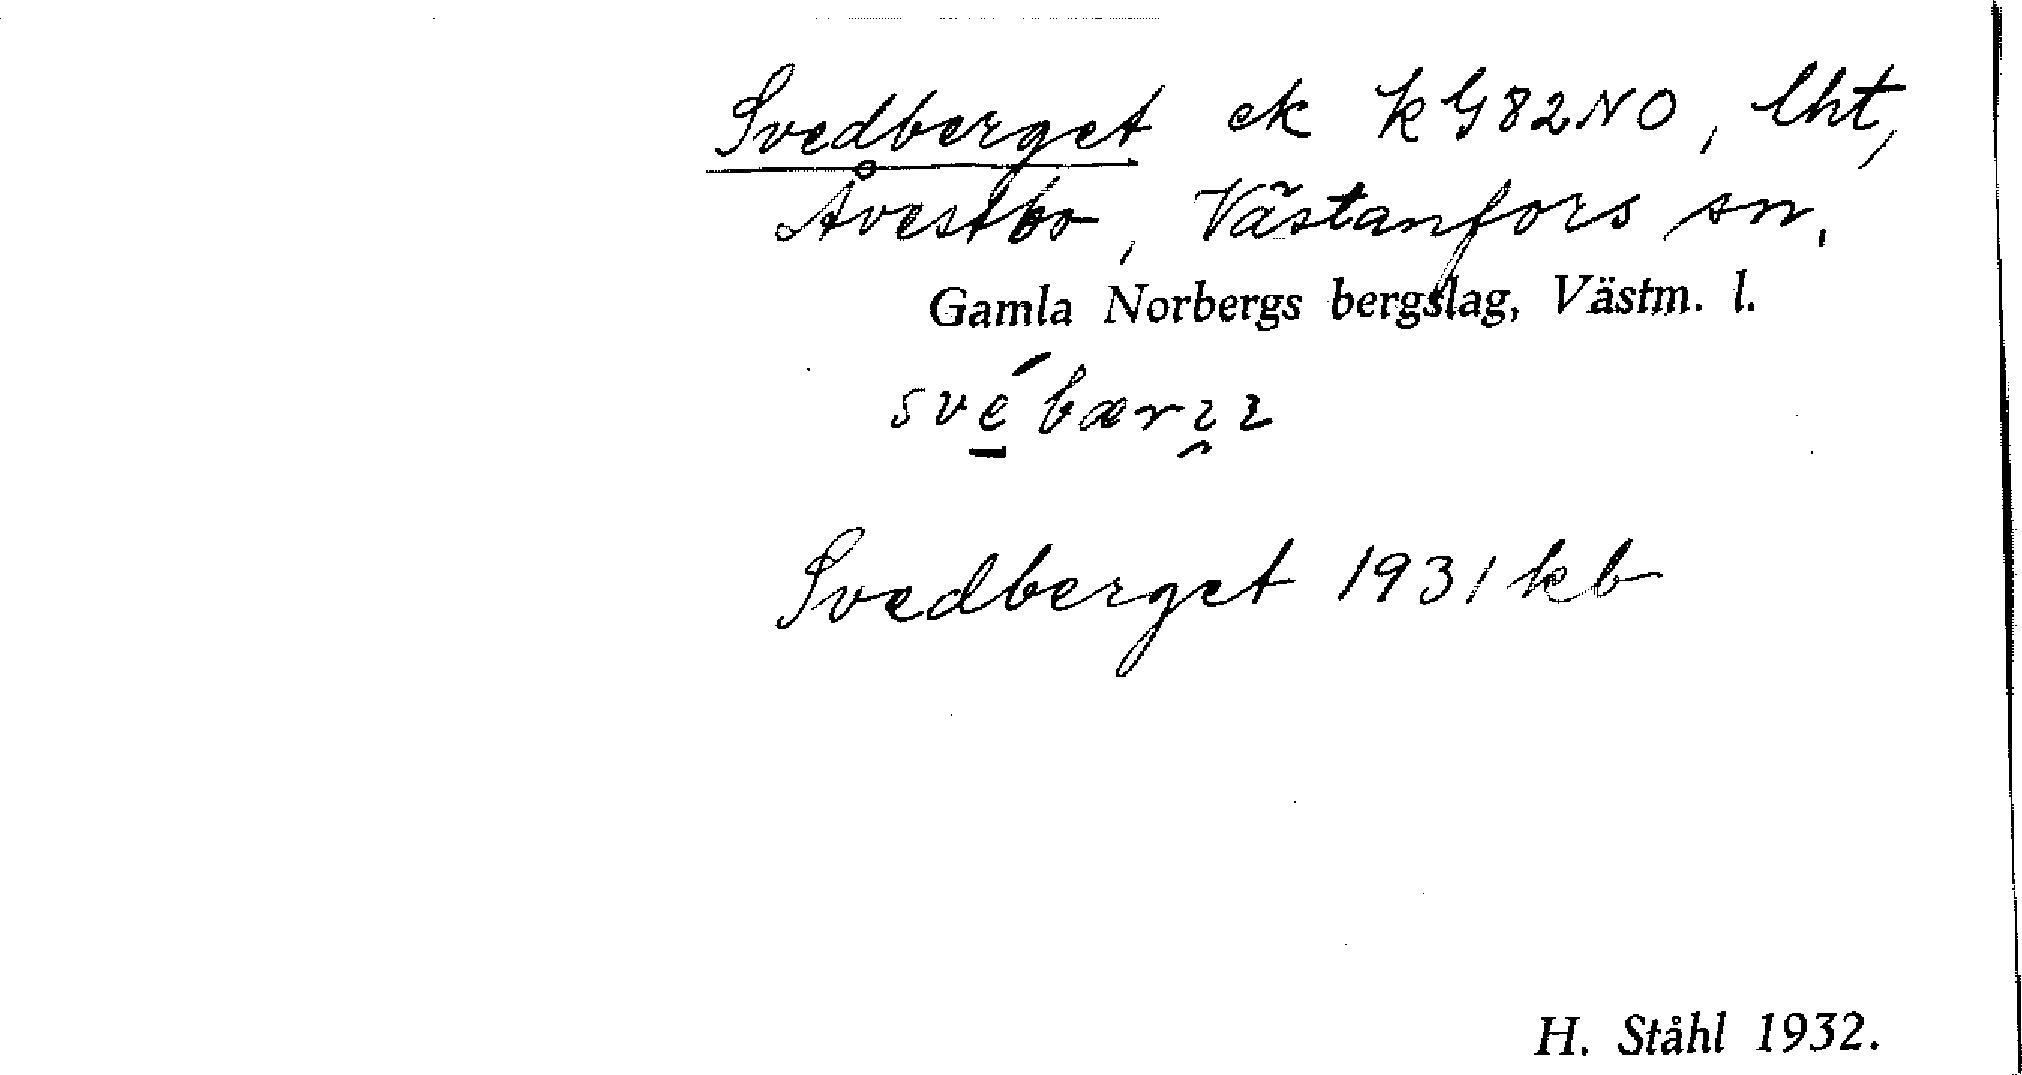 Svedberget ek k G82NO, lht,
Åvestbo, Västanfors sn,
Gamla Norbergs bergslag, Västm. l.
Svedberget 1931 kb
H. Ståhl 1932.